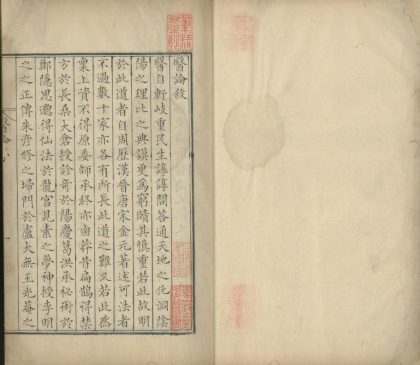 醫論敘
醫自軒岐重民生諄諄問答通天地之化洞陰
陽之理比之典謨更為窮賾其慎重若此故明
於此道者自周歷漢晉唐宋金元著述可法者
不過數十家亦各有所長此道之難又若此然
稟上資不得原委師承終亦鹵莽昔扁鵲得禁
方於長桑太倉授診奇於陽慶葛洪承秘術於
鄭隱思邈得仙法於龍宮見素之夢神授李明
之之正傳朱彥修之埽門於盧大無王光菴之
醫論